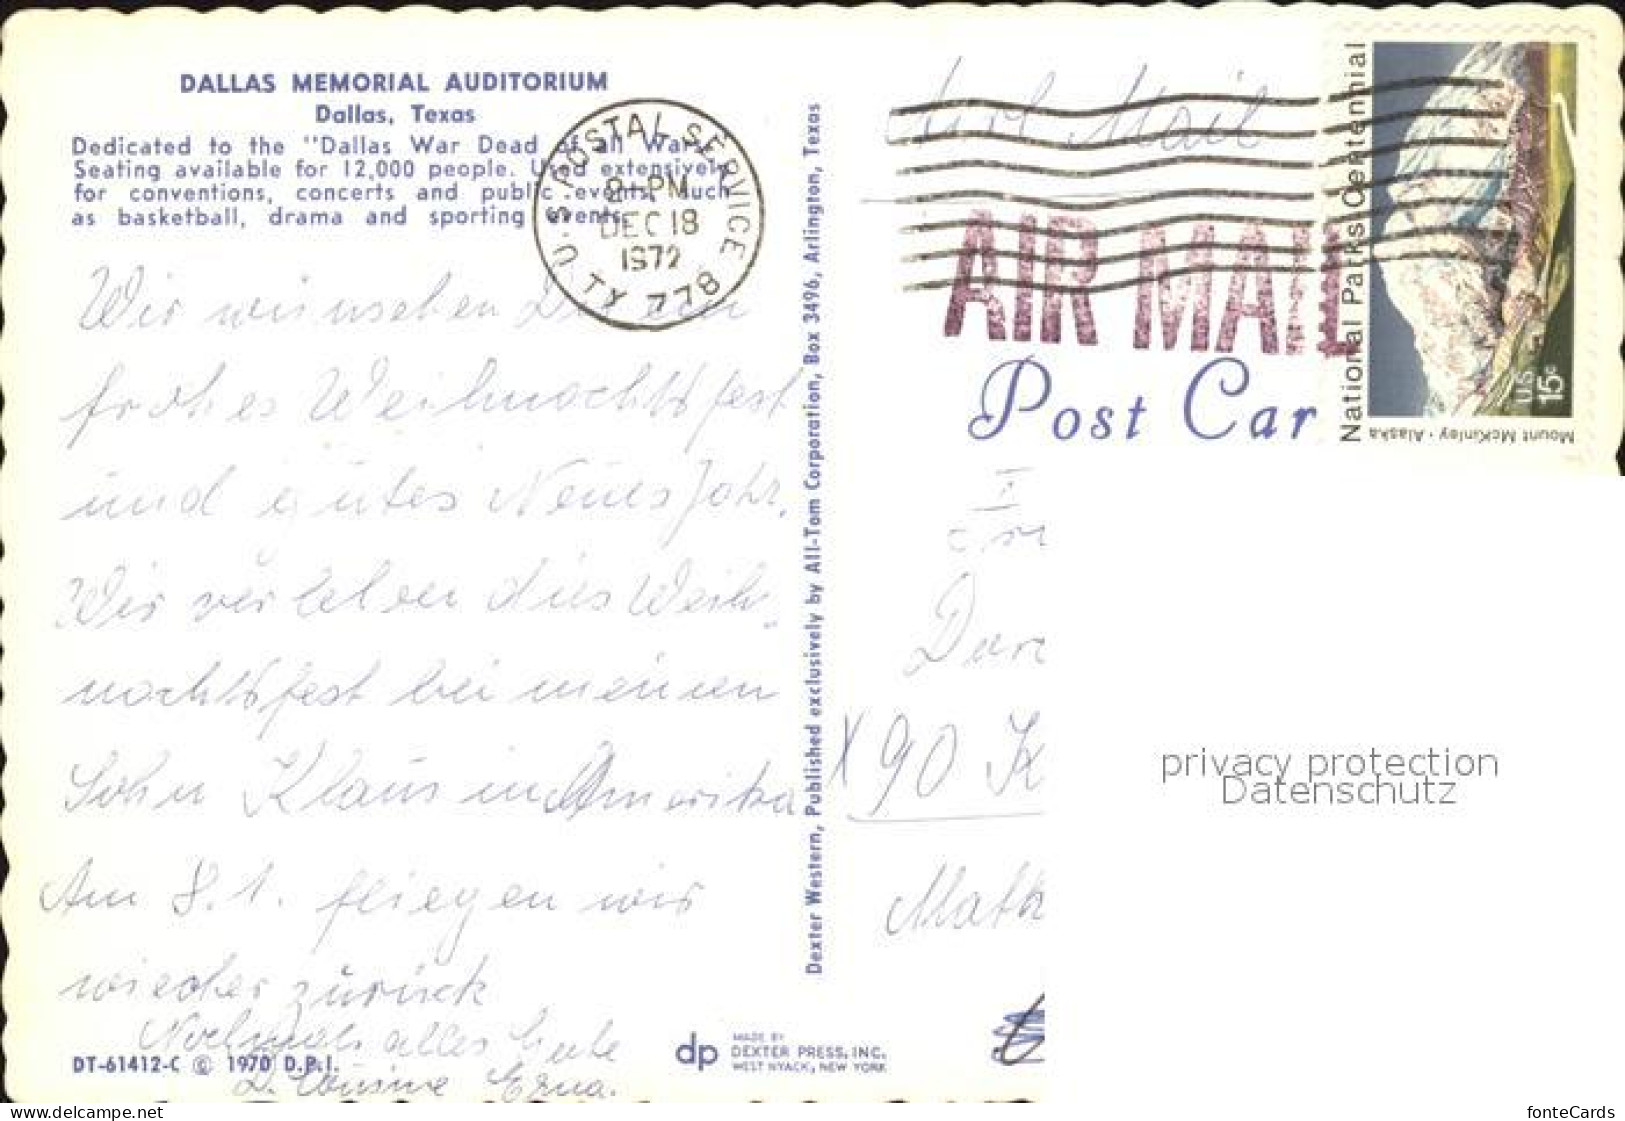 DALLAS MEMORIAL AUDITORIUM
Dallas, Texas
Dedicated to the "Dallas War Dead of all Wars
Seating available for 12,000 people. Used extensively
for conventions, concerts and public events, such
as basketball, drama and sporting events.
U.S. POSTAL SERVICE
PM
DEC 18
1972
TX 778
Wir wünschen Dir ein
frohes Weihnachtsfest
und gutes Neues Jahr.
Wir verleben dies Weih-
nachtsfest bei meinen
Sohn Klaus in Amerika
Am 8.1. fliegen wir
wieder zurück
Nochmals alles Gute
D. Cousine Erna.
DT-61412-C © 1970 D.P.I.
dp MADE BY
DEXTER PRESS, INC.
WEST NYACK, NEW YORK
Dexter Western, Published exclusively by All-Tom Corporation, Box 3496, Arlington, Texas
Air Mail
AIR MAIL
Post Car
National Parks Centennial
US 15c
Mount McKinley · Alaska
90 K
privacy protection
Datenschutz
www.delcampe.net
fonteCards